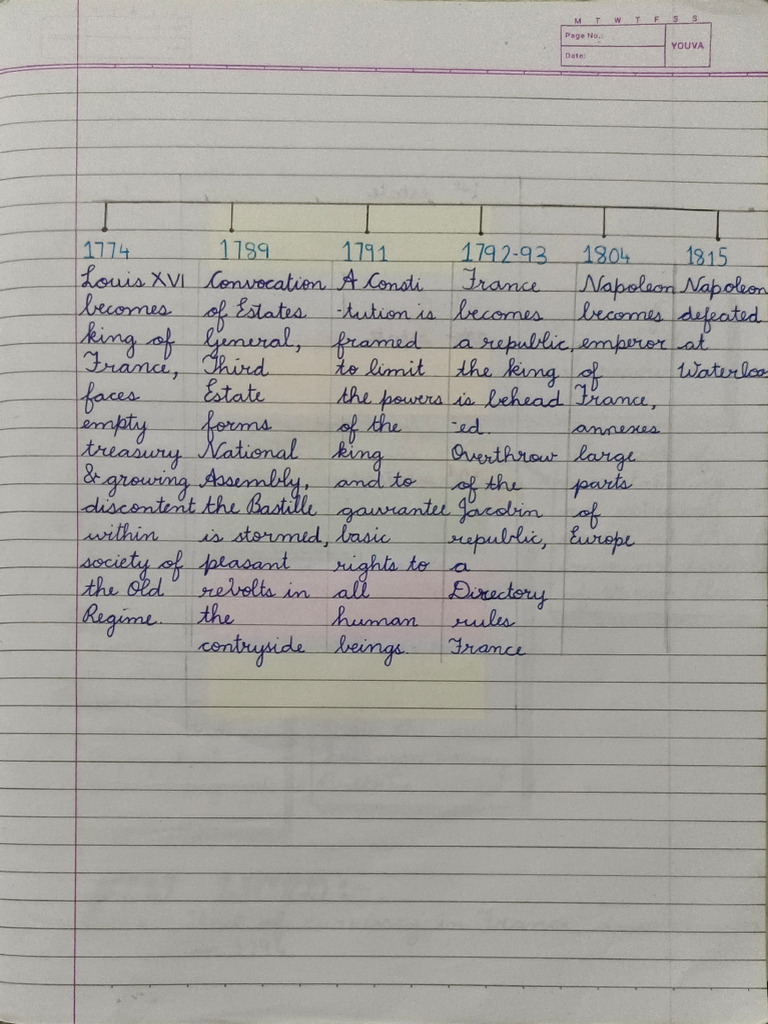 M T W T F S S
Page No.:
YOUVA
Date:
1774
Louis XVI
becomes
king of
France,
faces
empty
treasury
& growing
discontent
within
society of
the Old
Regime.
1789
Convocation
of Estates
General,
Third
Estate
forms
National
Assembly,
the Bastille
is stormed,
peasant
revolts in
the
contryside
1791
A Consti
-tution is
framed
to limit
the powers
of the
king
and to
gaurantee
basic
rights to
all
human
beings.
1792-93
France
becomes
a republic,
the king
is behead
-ed.
Overthrow
of the
Jacobin
republic,
a
Directory
rules
France
1804
Napoleon
becomes
emperor
of
France,
annexes
large
parts
of
Europe
1815
Napoleon
defeated
at
Waterloo